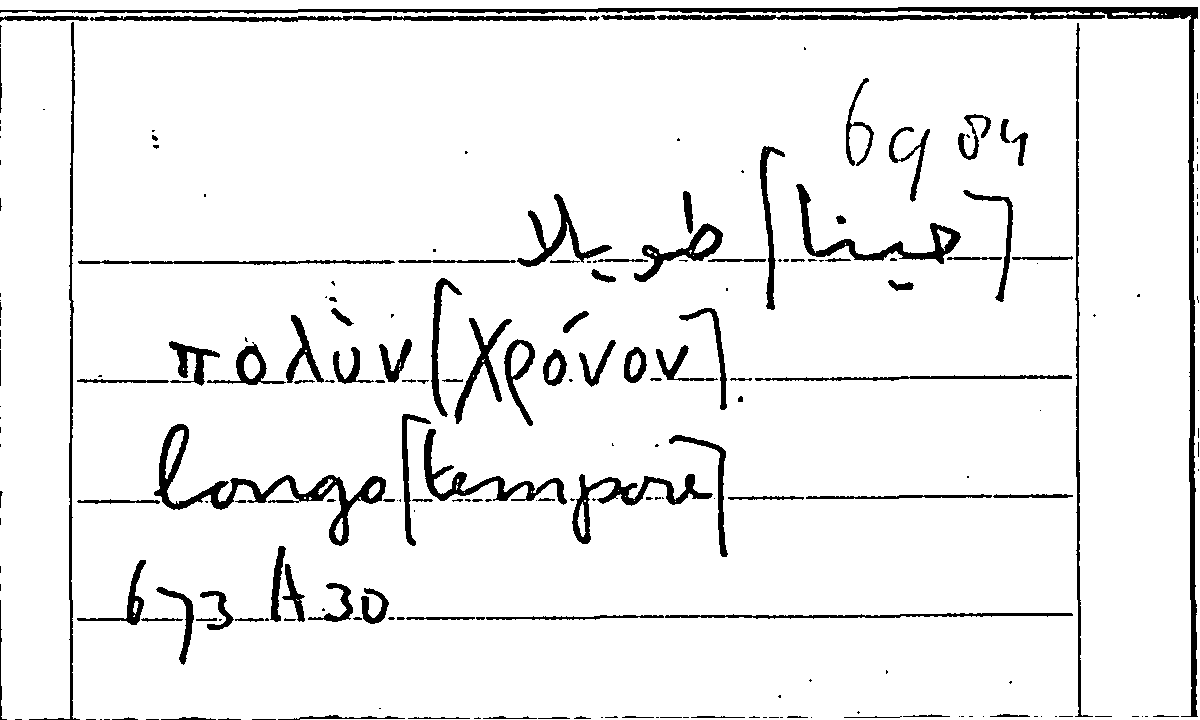 6984
[حينا] طويلا
πολὺν [χρόνον]
longo [tempore]
673 A 30